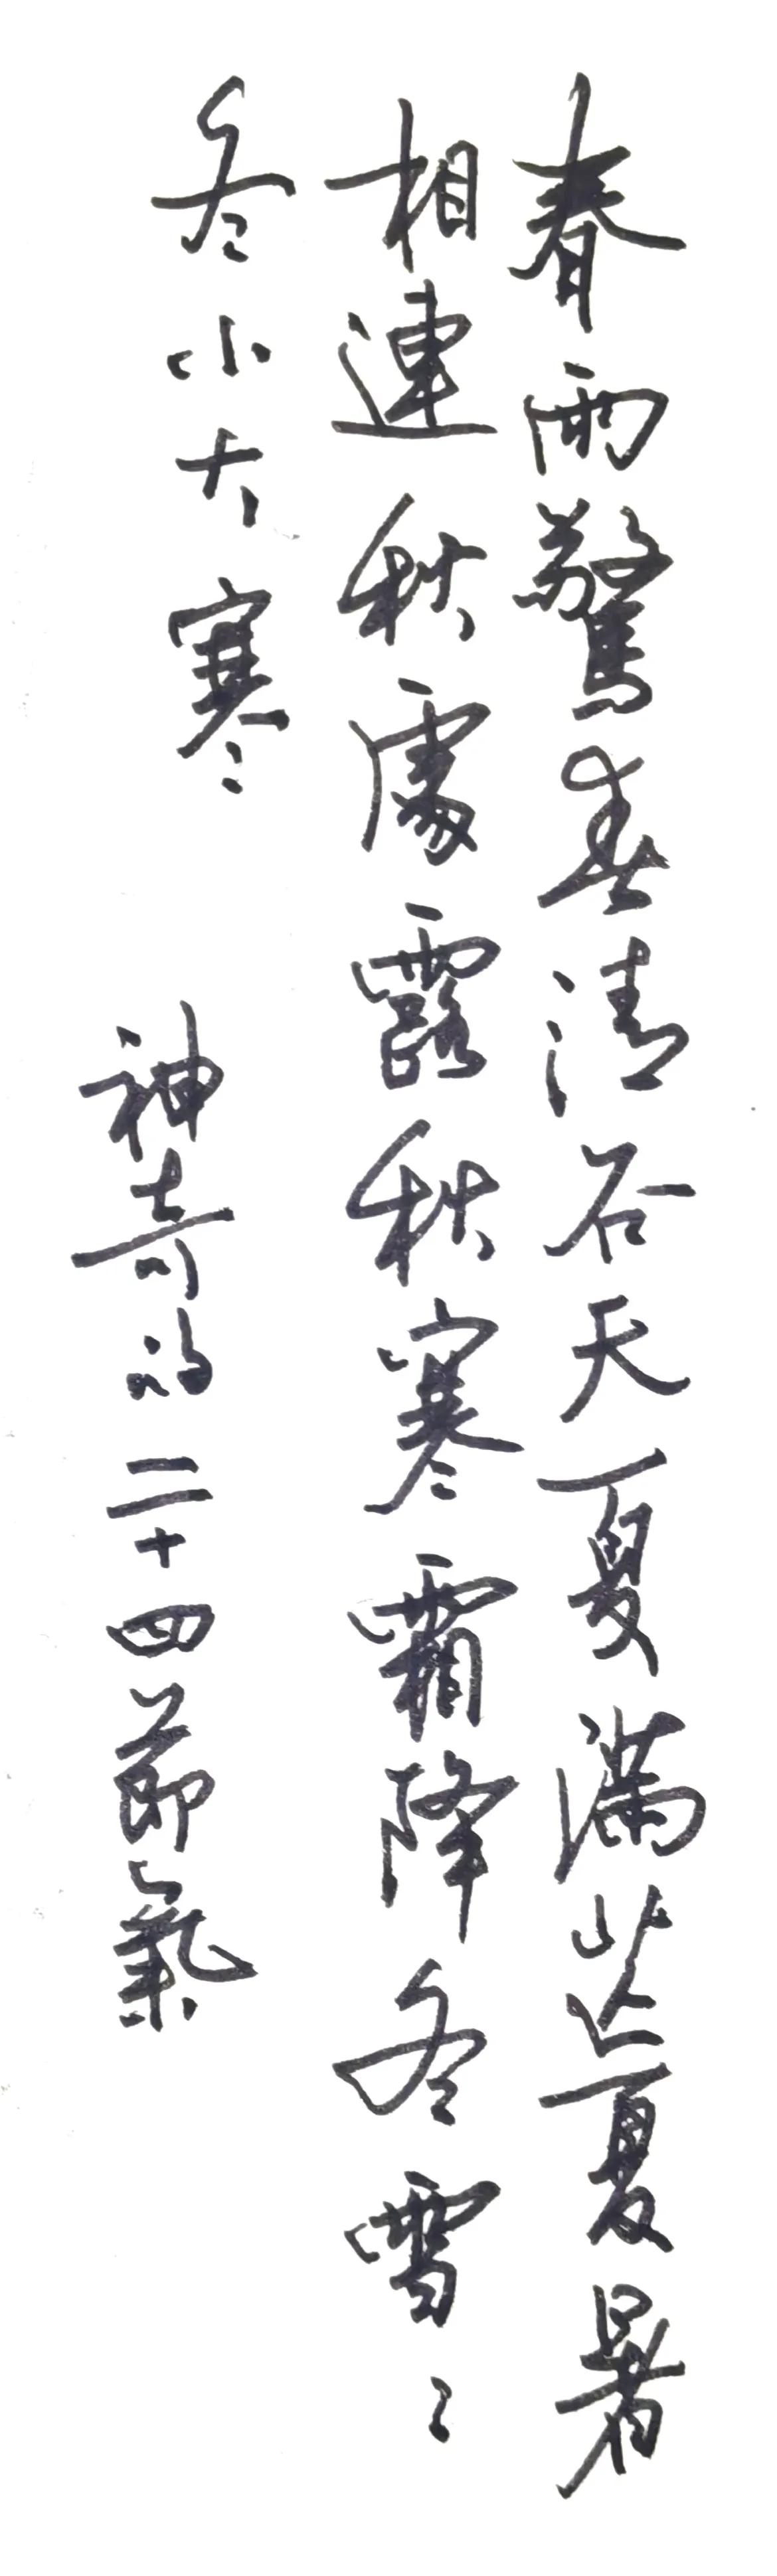 春雨驚春清谷天夏滿芒夏暑
相連秋處露秋寒霜降冬雪〻
冬小大寒
神奇的二十四節氣